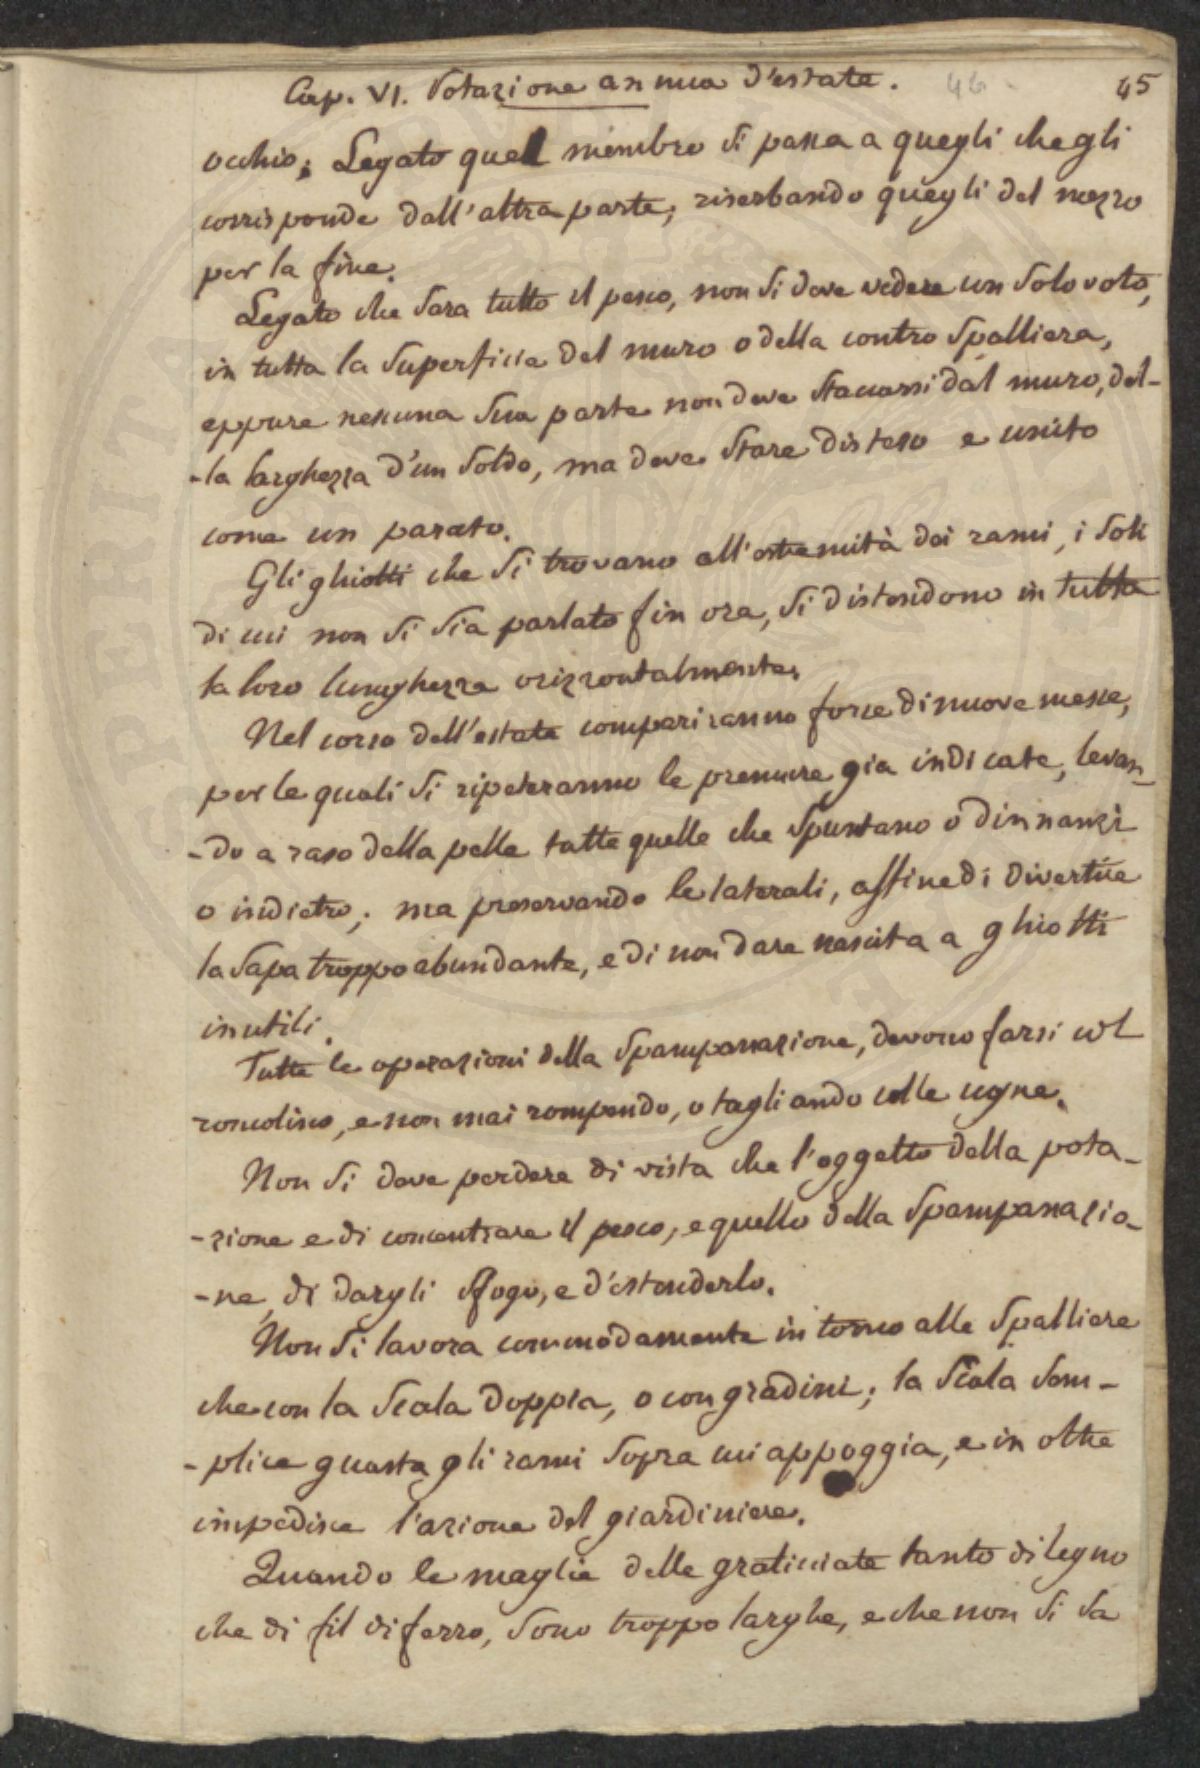 Cap. VI. Potazione annua d'estate. 46. 45
occhio; Legato quel membro si passa a quegli che gli
corrisponde dall'altra parte; riserbando quegli del mezzo
per la fine.
Legato che sara tutto il pesco, non si deve vedere un solo voto,
in tutta la superficie del muro o della contro spalliera,
eppure nessuna sua parte non deve staccarsi dal muro, del-
-la larghezza d'un soldo, ma deve stare disteso e unito
come un parato.
Gli ghiotti che si trovano all'estremità dei rami, i soli
di cui non si sia parlato fin ora, si distendono in tutta
la loro lunghezza orizzontalmente.
Nel corso dell'estate compariranno forse di nuove messe,
per le quali si ripeteranno le premure gia indicate, levan-
-do a raso della pelle tutte quelle che spuntano o dinnanzi
o indietro; ma preservando le laterali, affine di divertire
la sapa troppo abundante, e di non dare nascita a ghiotti
inutili.
Tutte le operazioni della spampanazione, devono farsi col
roncolino, e non mai rompendo, o tagliando colle ugne.
Non si deve perdere di vista che l'oggetto della pota-
-zione e di concentrare il pesco, e quello della spampanazio-
-ne, di dargli sfogo, e d'estenderlo.
Non si lavora commodamente in torno alle spalliere
che con la scala doppia, o con gradini; la scala sem-
-plice guasta gli rami sopra cui appoggia, e in oltre
impedisce l'azione del giardiniere.
Quando le maglie delle graticciate tanto di legno
che di fil di ferro, sono troppo larghe, e che non si sa